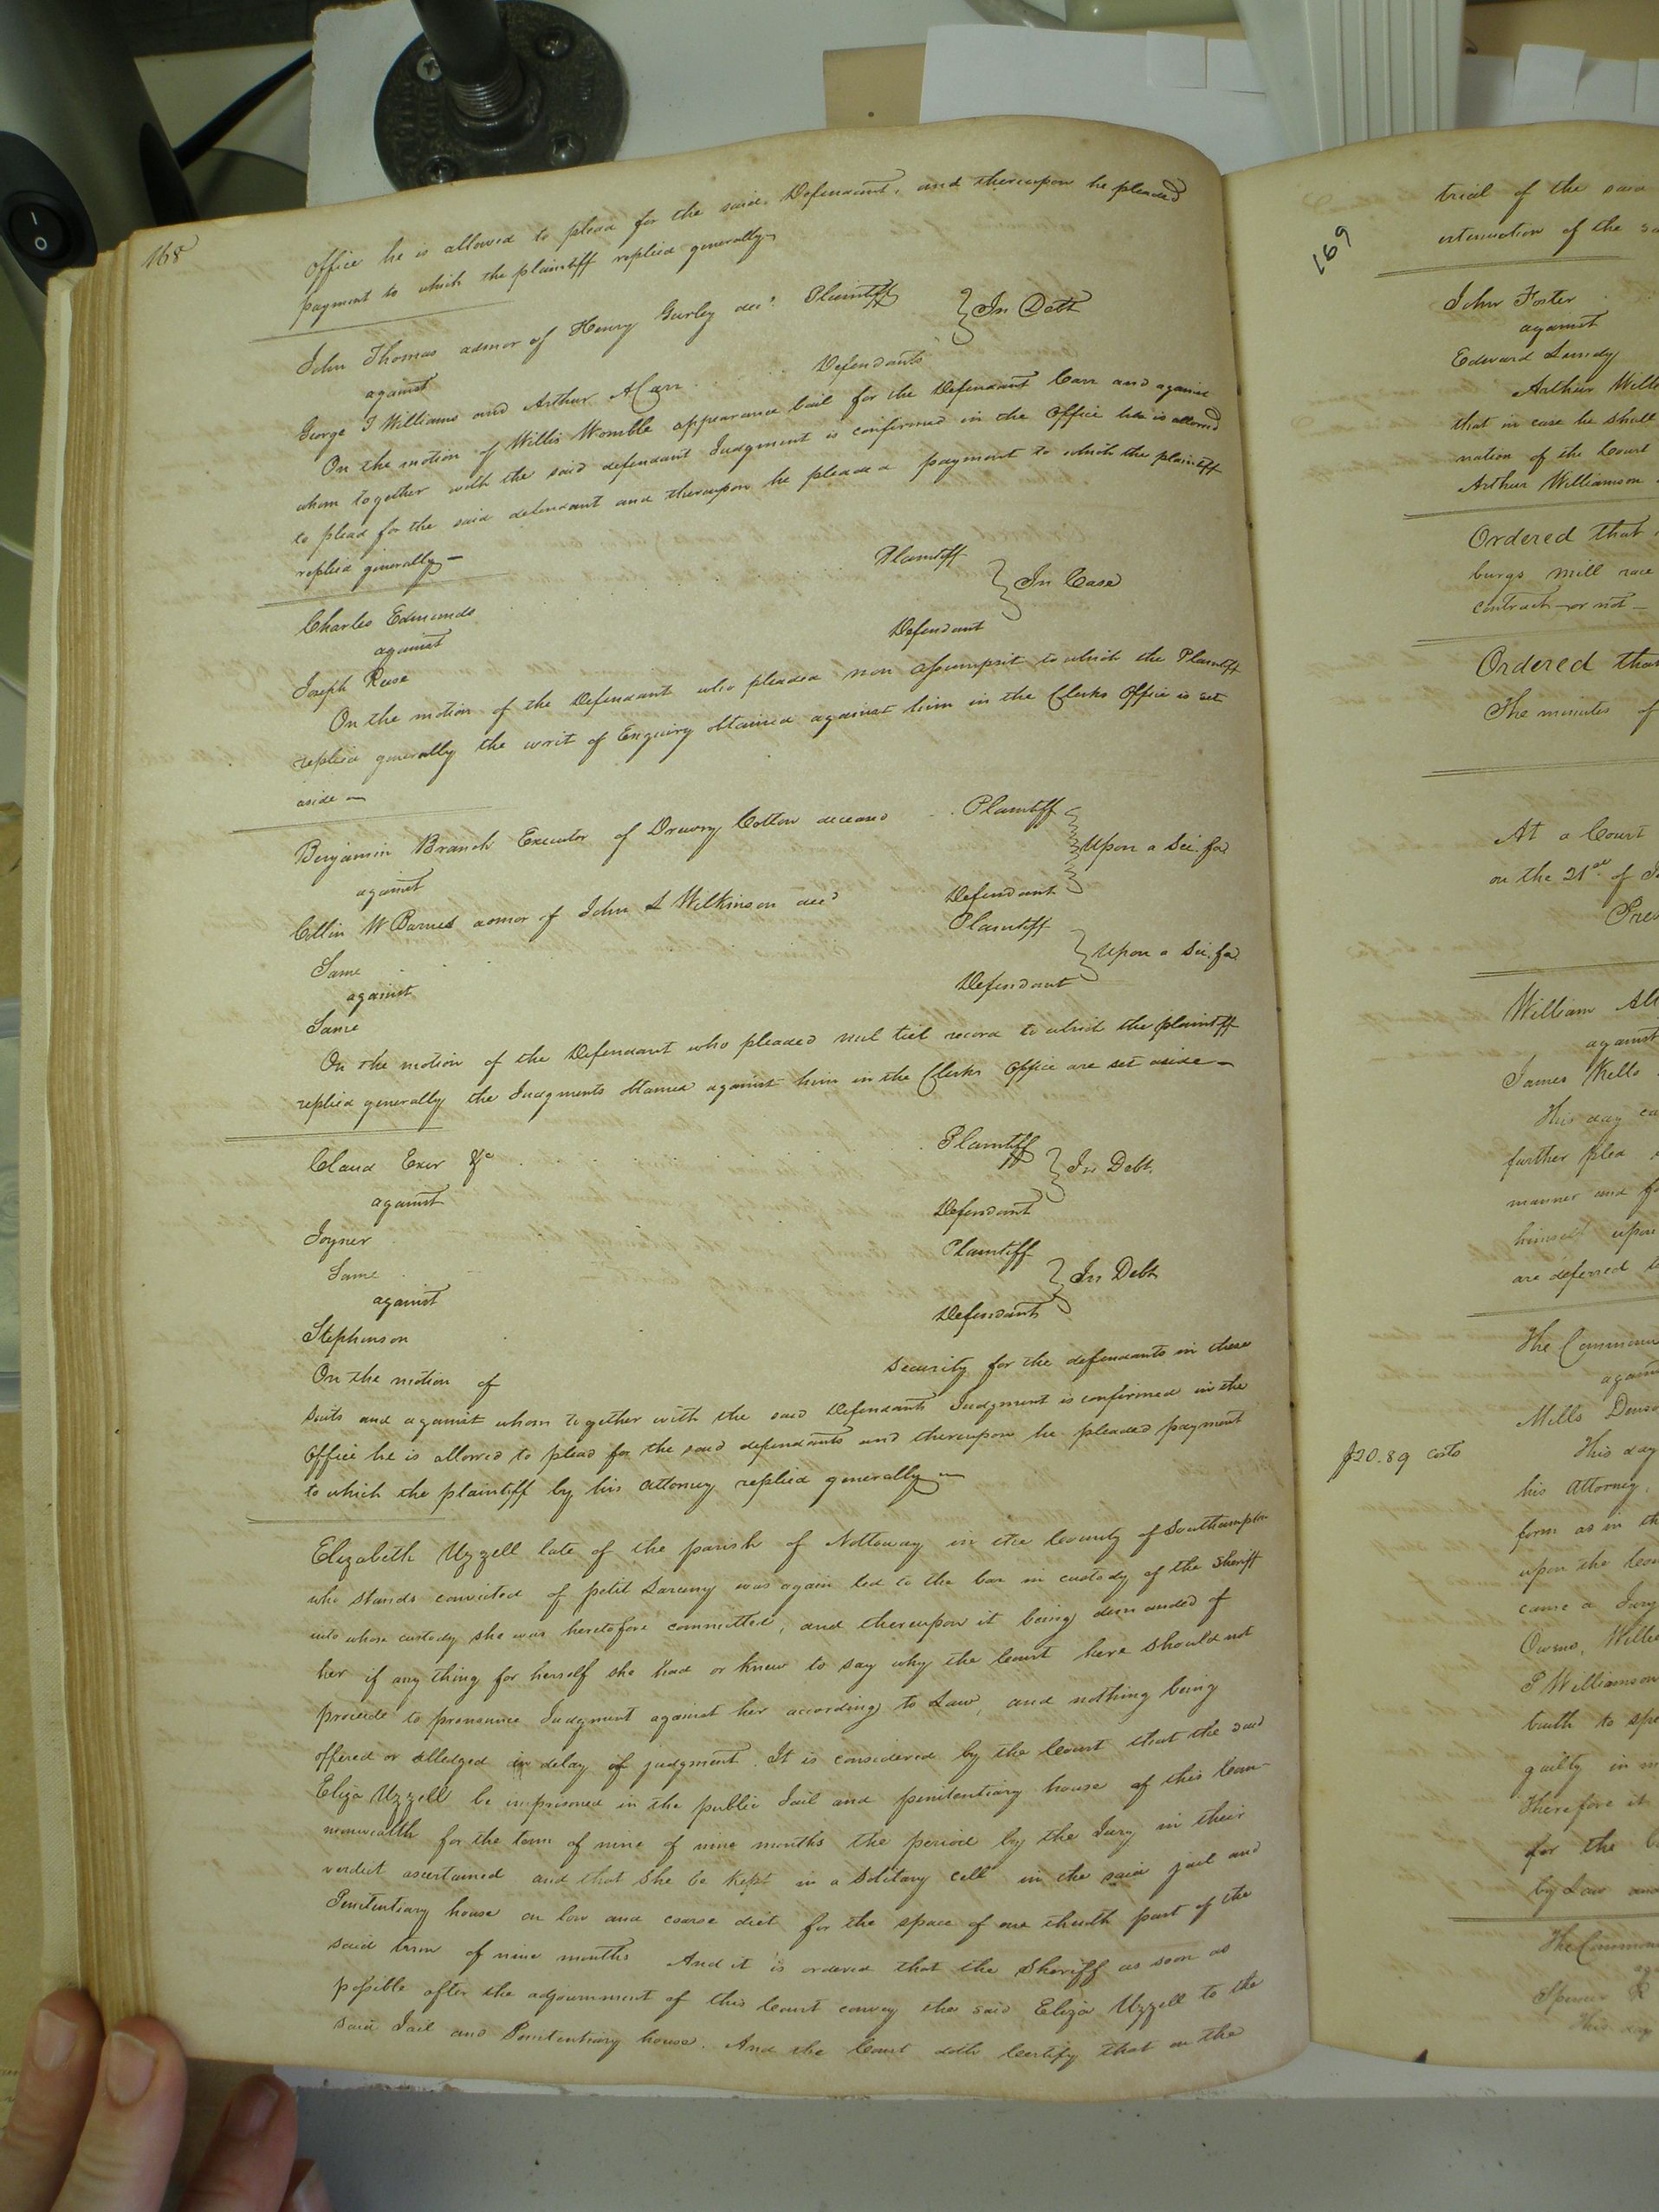 168
office he is allowed to plead for the said Defendant, and thereupon he pleaded
payment to which the plaintiff replied generally
John Thomas admor of Henry Gurley decd. Plaintiff
against
In Debt
George J Williams and Arthur A Carr Defendants
On the motion of Willis Womble appearance bail for the Defendant Carr and against
whom together with the said defendant Judgment is confirmed in the Office he is allowed
to plead for the said defendant and thereupon he pleaded payment to which the plaintiff
replied generally —
Charles Edmunds Plaintiff
against
In Case
Joseph Reese Defendant
On the motion of the Defendant who pleaded non assumpsit to which the Plaintiff
replied generally the writ of Enquiry obtained against him in the Clerks Office is set
aside —
Benjamin Branch Executor of Drewry Cotton deceased Plaintiff
against
Upon a Sci. fa.
Collin W Barnes admor of John S Wilkinson decd Defendant
Same Plaintiff
against
Upon a Sci. fa.
Same Defendant
On the motion of the Defendant who pleaded nul tiel record to which the plaintiff
replied generally the Judgments obtained against him in the Clerks Office are set aside —
Claud Exor &c Plaintiff
against
In Debt.
Joyner Defendant
Same Plaintiff
against
In Debt
Stephenson Defendants
On the motion of security for the defendants in these
suits and against whom together with the said Defendants Judgment is confirmed in the
office he is allowed to plead for the said defendants and thereupon he pleaded payment
to which the plaintiff by his attorney replied generally —
Elizabeth Uzzell late of the parish of Nottoway in the County of Southampton
who stands convicted of petit Larceny was again led to the bar in custody of the Sheriff
into whose custody she was heretofore committed, and thereupon it being demanded of
her if any thing for herself she had or knew to say why the Court here should not
proceede to pronounce Judgment against her according to Law, and nothing being
offered or alledged in delay of judgment. It is considered by the Court that the said
Eliza Uzzell be imprisoned in the public Jail and penitentiary house of this Com-
monwealth for the term of nine of nine months the period by the Jury in their
verdict ascertained and that she be kept in a solitary cell in the said jail and
Penitentiary house on low and coarse diet for the space of one twelth part of the
said term of nine months And it is ordered that the Sheriff as soon as
possible after the adjournment of this Court convey the said Eliza Uzzell to the
said Jail and Penitentiary house. And the Court doth Certify that on the
169
trial of the said
John Foster
against
Edward Lundy
Arthur Will
that in case he shall
nation of the Court
Arthur Williamson
Ordered that
burgs mill race
contract or not —
Ordered that
The minutes of
At a Court
on the 21st of J
Pres
William
against
James Kello
This day ca
further plea
manner and fo
himself upon
are deferred t
The Common
again
Mills Dens
$20.89 costs
This day
his Attorney,
form as in th
upon the Coun
came a Jury
Owens, Willi
P Williamson
truth to spe
guilty in m
Therefore it
for the C
by Law and
The Common
aga
Spencer R
This day